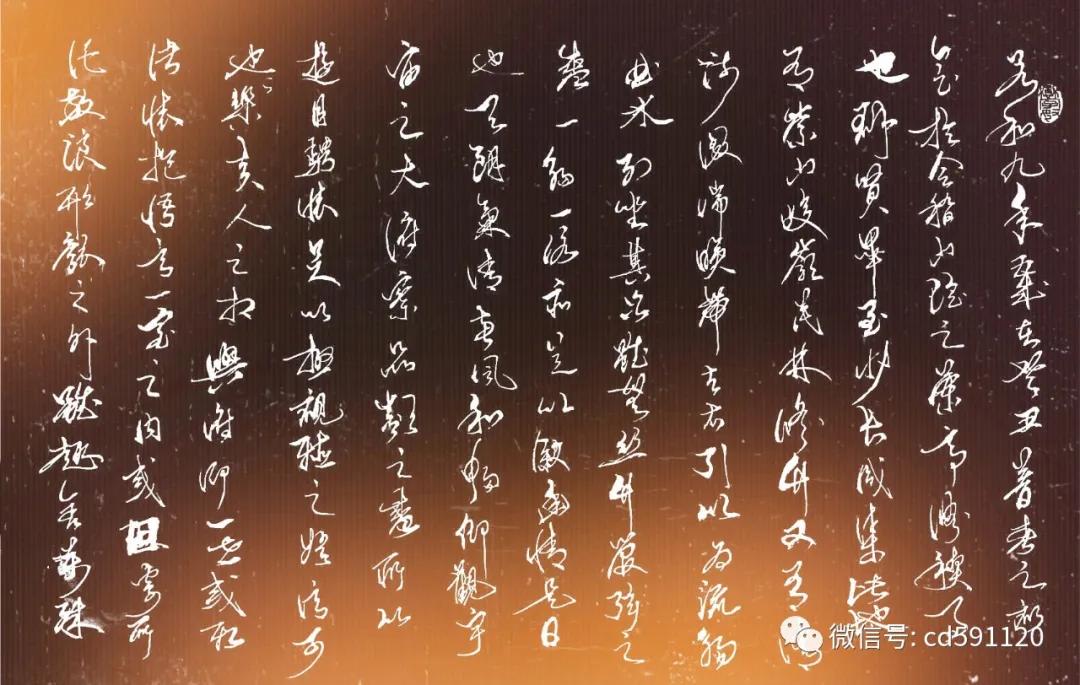 永和九年歲在癸丑暮春之初
會於會稽山陰之蘭亭脩禊事
也群賢畢至少長咸集此地
有崇山峻嶺茂林脩竹又有清
流激湍暎帶左右引以為流觴
曲水列坐其次雖無絲竹管弦之
盛一觴一詠亦足以敘幽情是日
也天朗氣清惠風和暢仰觀宇
宙之大俯察品類之盛所以
遊目騁懷足以極視聽之娛信可
也樂夫人之相與俯仰一世或取
諸懷抱悟言一室之內或因寄所
託放浪形骸之外雖趣舍萬殊
微信号: cd591120